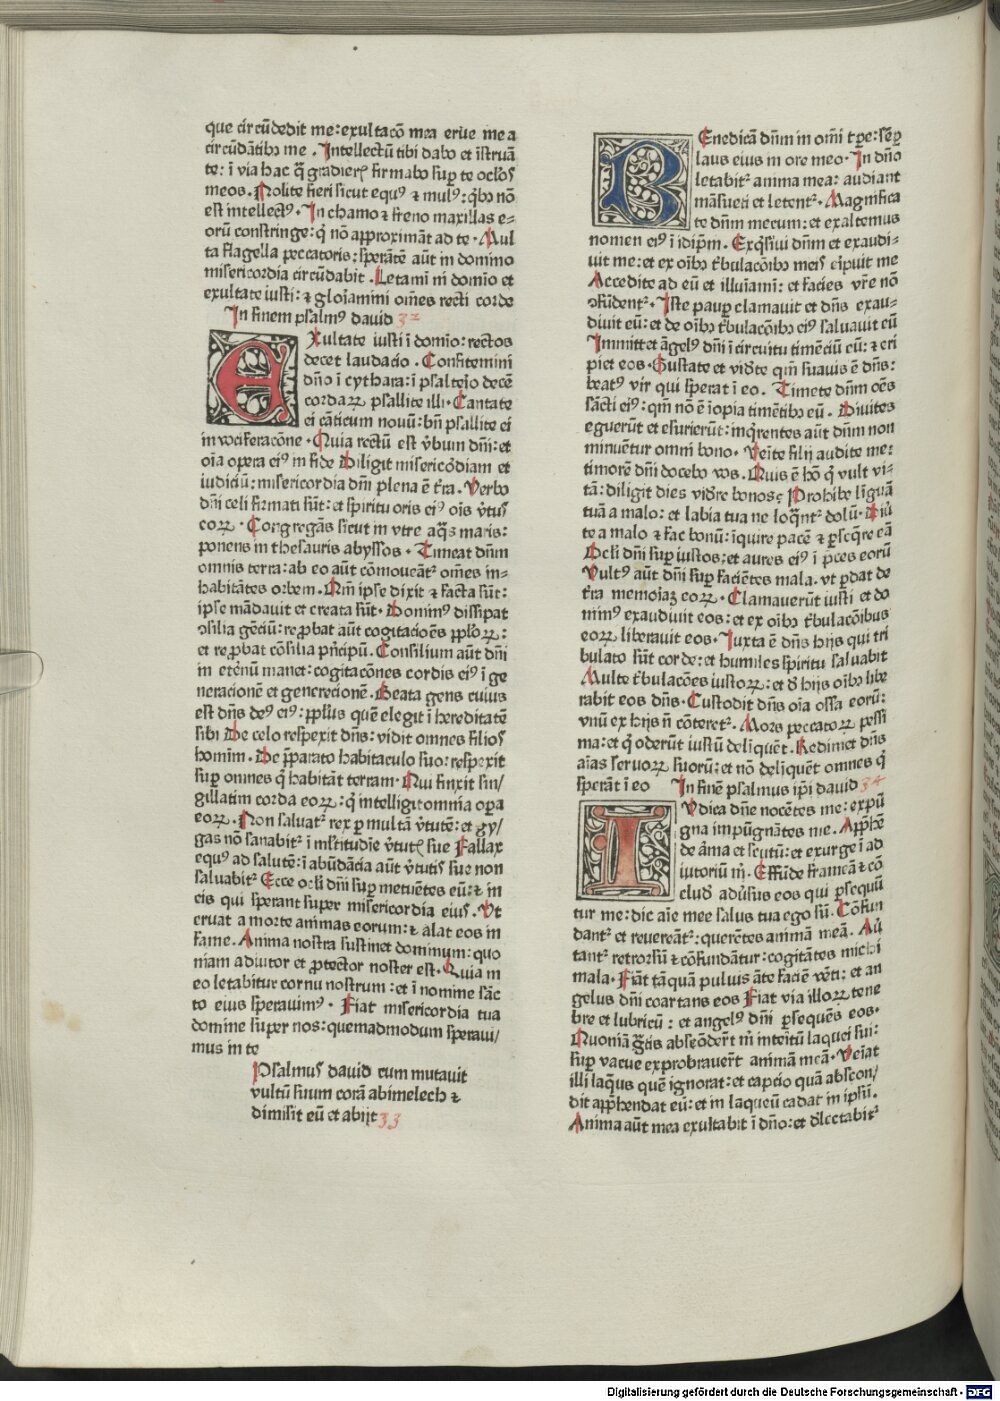 que circūdedit me: exultacō mea erue me a
circūdātibꝫ me . Intellectū tibi dabo et īstruā
te: ī via hac q̄ gradierꝭ firmabo suꝑ te oclōs
meos . Nolite fieri sicut equꝰ ⁊ mulꝰ: qͥbꝫ nō
est intellectꝰ . In chamo ⁊ freno maxillas e⸗
orū constringe: qͥ nō approximāt ad te . Mul
ta flagella peccatoris: sperātē aūt in domino
misericordia circūdabit . Letami m̄ domīo et
exultate iusti: ⁊ gloīamini om̄es recti corde
In finem psalmꝰ dauid 32
EXultate iusti ī domīo: rectos
decet laudacio . Confitemini
dn̄o ī cythara: ī psalteīo decē
cordaꝝ psallite illi . Cantate
ei cāticum nouū: bn̄ psallite ei
in vociferacōne . Quia rectū est v̄bum dn̄i: et
oīa opera eiꝰ in fide Diligit misericōdiam et
iudiciū: misericordia dn̄i plena ē t̄ra . Verbo
dn̄i celi firmati sūt: et spiritu oris eiꝰ oīs v̄tus
eoꝝ . Congregās sicut in vtre aq̄s maris:
ponens in thesauris abyssos . Timeat dn̄m
omnis terra: ab eo aūt cōmoueātᷣ om̄es in⸗
habitātes orbem . Qm̄ ipse dixit ⁊ facta sūt:
ipse mādauit et creata sūt . Dominꝰ dissipat
ↄsilia gēciū: reꝓbat aūt cogitacioēs ppl̓oꝝ:
et reꝓbat cōsilia pn̄cipū . Consilium aūt dn̄i
in etern̄ū manet: cogitacōnes cordis eiꝰ ī ge
neracionē et generecionē . Beata gens cuius
est dn̄s deꝰ eiꝰ: ppl̓us quē elegit ī hereditatē
sibi De celo respexit dn̄s: vidit omnes filios
homīm . De p̄parato habitaculo suo: respexit
suꝑ omnes qͥ habitāt terram . Qui finxit sin/
gillatim corda eoꝝ: qͥ intelligit omnia oꝑa
eoꝝ . Non saluatᷣ rex ꝑ multā v̄tutē: et gy/
gas nō sanabitᷣ ī ml̓titudīe v̄tutꝭ sue Fallax
equꝰ ad salutē: ī abūdātia aūt v̄tutis sue non
saluabitᷣ Ecce ocl̓i dn̄i suꝑ metuētes eū: ⁊ in
eis qui sperant super misericordia eius . Vt
eruat a morte animas eorum: ⁊ alat eos in
fame . Anima nostra sustinet dominum: quo
niam adiutor et ꝓtector noster est . Quia in
eo letabitur cor nu nostrum: et ī nomine sāc
to eius sperauimꝰ . Fiat misericordia tua
domine super nos: quemadmodum speraui/
mus in te
Psalmus dauid cum mutauit
vultū suum corā abimelech ⁊
dimisit eū et abijt 33
BEnedicā dn̄m in om̄i tp̄e: sēꝑ
laus eius in ore meo . In dn̄o
letabitᷣ anima mea: audiant
māsueti et letentᷣ . Magnifica
te dn̄m mecum: et exaltemus
nomen eiꝰ ī idip̄m . Exqͥsiui dn̄m et exaudi⸗
uit me: et ex oībꝫ t̓bulacōībꝫ meis eīpuit me
Accedite ad eū et illuīami: et facies vr̄e nō
ↄfūdentᷣ . Iste pauꝑ clamauit et dn̄s exau⸗
diuit eū: et de oībꝫ t̓bulacōībꝫ eiꝰ saluauit eū
Immittet āgelꝰ dn̄i ī circuitu timēciū eū: ⁊ eri
piet eos . Gustate et vid̓te qm̄ suauis ē dn̄s:
beatꝰ vir qui sperat ī eo . Timete dn̄m oēs
sācti eiꝰ: qm̄ nō ē īopia timētibꝫ eū . Diuites
eguerūt et esurierūt: inqͥrentes aūt dn̄m non
minuētur omni bono . Veīte filij audite me:
timorē dn̄i docebo vos . Quis ē hō qͥ vult vi⸗
tā: diligit dies vid̓re bonos? Prohibe līguā
tuā a malo: et labia tua ne loq̄ntᷣ dolū . Diū
te a malo ⁊ fac bonū: īquire pacē ⁊ ꝑseqͥre eā
Ocl̓i dn̄i suꝑ iustos: et aures eiꝰ ī p̄ces eorū
Vultꝰ aūt dn̄i suꝑ faciētes mala . vt ꝑdat de
t̄ra memoīaꝫ eoꝝ . Clamauerūt iusti et do
minꝰ exaudiuit eos: et ex oībꝫ t̓bulacōibus
eoꝝ liberauit eos . Iuxta ē dn̄s hijs qui tri
bulato sūt corde: et humiles spiritu saluabit
Multe t̓bulacōes iustoꝝ: et d̓ hijs oībꝫ libe
rabit eos dn̄s . Custodit dn̄s oīa ossa eorū:
vnū ex hijs n̄ cōteretᷣ . Mors peccatoꝝ pessi
ma: et qͥ oderūt iustū deliquēt . Redimet dn̄s
aīas seruoꝝ suorū: et nō deliquēt omnes qͥ
sperāt ī eo In finē psalmus ip̄i dauid 34
IVdica dn̄e nocētes me: expū
gna impūgnātes me . Appͤhē
de ārma et scutū: et exurge ī ad
iutoriū m̄ . Effūde frameā ⁊ cō
clud̓ adūsus eos qui ꝑsequū
tur me: dic aīe mee salus tua ego sū . Cōfun
dantᷣ et reuereātᷣ: querētes animā meā . Aū
tantᷣ retrorsū ⁊ cōfundātur: cogitātes michi
mala . Fiāt tāquā puluis āte faciē vēti: et an
gelus dn̄i coartans eos Fiat via illoꝝ tene
bre et lubricū: et angelꝰ dn̄i ꝑsequēs eos .
Quoniā gͣtis abscōdert̄ m̄ interitū laquei sui:
suꝑ vacue exprobrauert̄ animā meā . Veīat
illi laqͦus quē ignorat: et captio quā abscon/
dit appͤhendat eū: et in laqueū cadat in ipsū .
Anima aūt mea exultabit ī dn̄o: et d̓lectabitᷣ
Digitalisierung gefördert durch die Deutsche Forschungsgemeinschaft - DFG